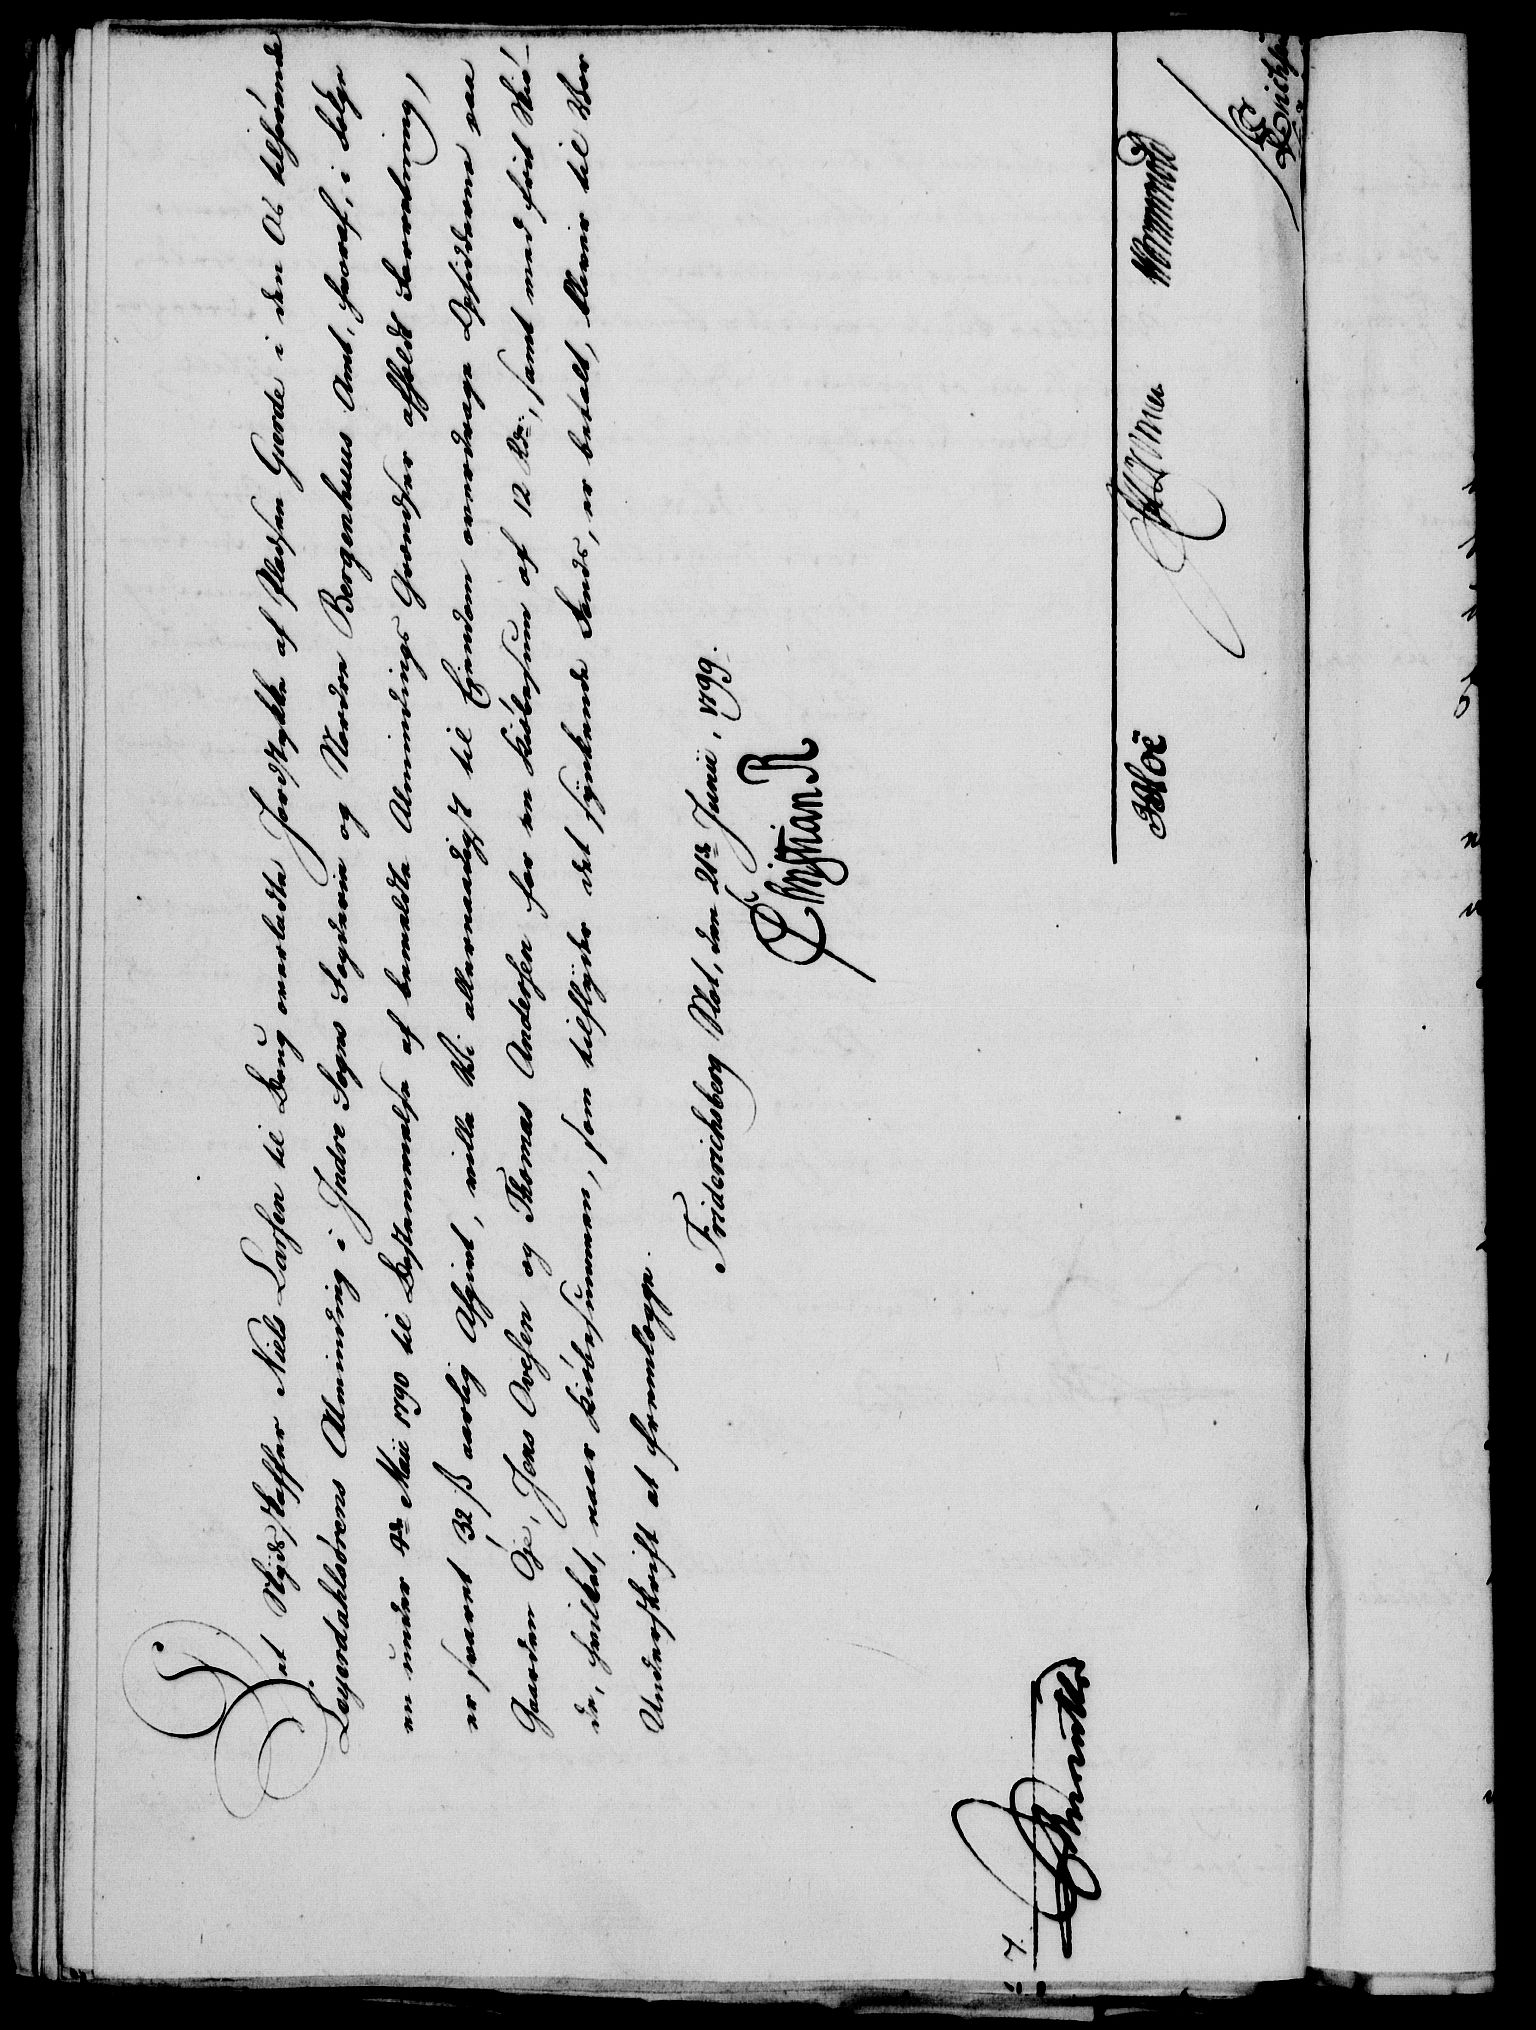 Det Skydsskaffer Niels Larsen til Brug overladte Jordstykke af Pladsen Gierde i den Os tilhørende
Leyerdahlsørens Alminding i Indre Sogns Fogderie og Nordre Bergenhuus Amt, hvoraf, i Følge
en under 4de Maii 1790 til Bestemmelse af bemeldte Almindings Grændser afholdt Forretning,
er svaret 32 ß aarlig Afgivt, ville Vi allernaadigst til Ejendom overdrage Opsidderne paa
Gaarden Øje, Jens Ovesen og Thomas Andersen for en Kiöbesum af 12 Rdr., samt med frit Skiö-
de, hvilket, naar Kiöbesummen, som tilflyder det synkende Fonds, er betalt, bliver til Vor
Underskrift at fremlegge.
Friderichsberg Slot, den 21de Junii, 1799.
Christian R